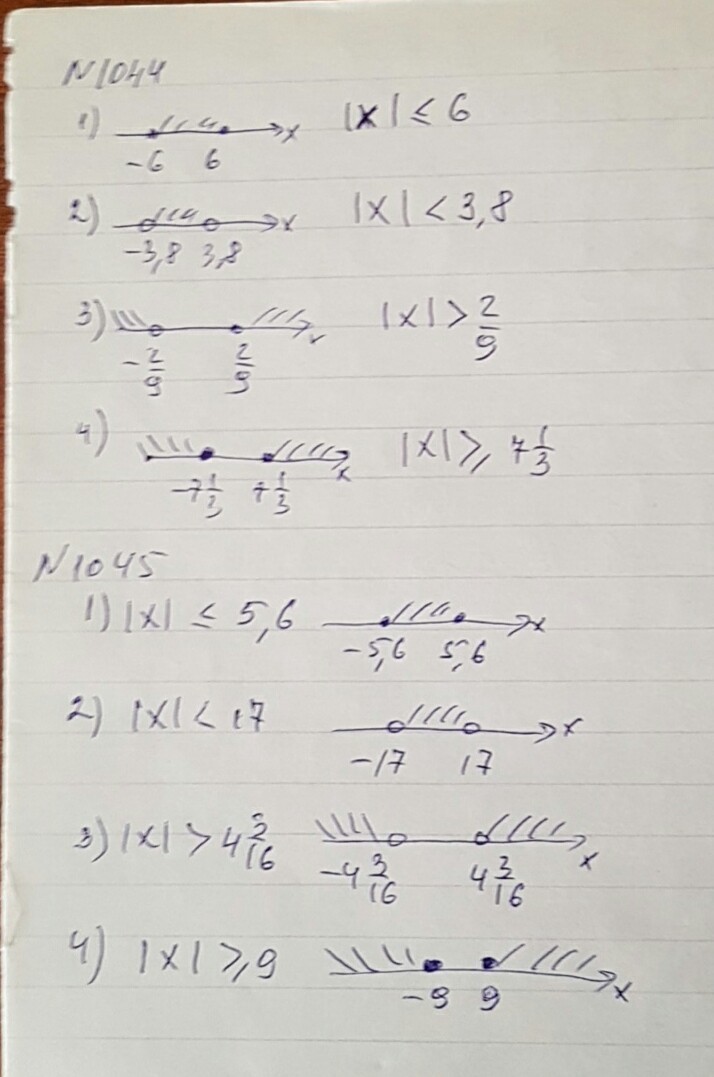 N1044
1) x |x| ≤ 6
-6 6
2) x |x| < 3,8
-3,8 3,8
3) x |x| > 2/9
-2/9 2/9
4) x |x| ≥ 7 1/3
-7 1/3 7 1/3
N1045
1) |x| ≤ 5,6 x
-5,6 5,6
2) |x| < 17 x
-17 17
3) |x| > 4 3/16 x
-4 3/16 4 3/16
4) |x| ≥ 9 x
-9 9